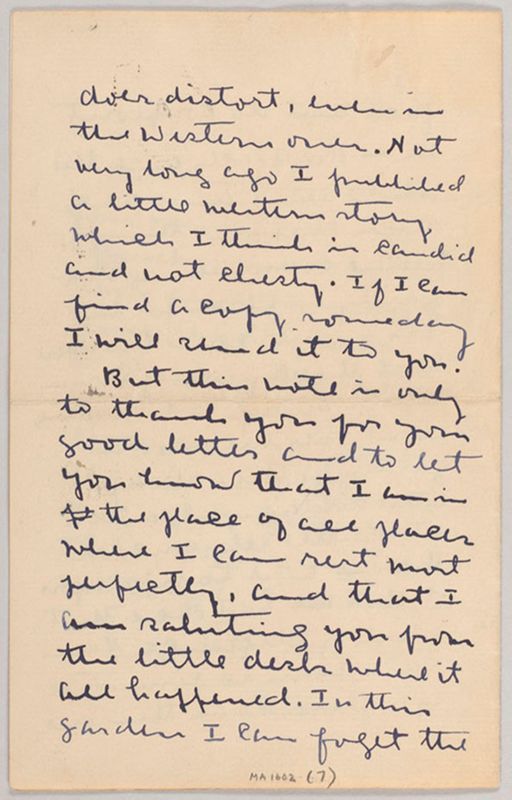 does distort, even in
the Western ones. Not
very long ago I published
a little western story
which I think is candid
and not chesty. If I can
find a copy someday
I will send it to you.
But this note is only
to thank you for your
good letter and to let
you know that I am in
the place of all places
where I can rest most
perfectly, and that I
am saluting you from
the little desk where it
all happened. In this
garden I can foget the
MA 1602 (7)